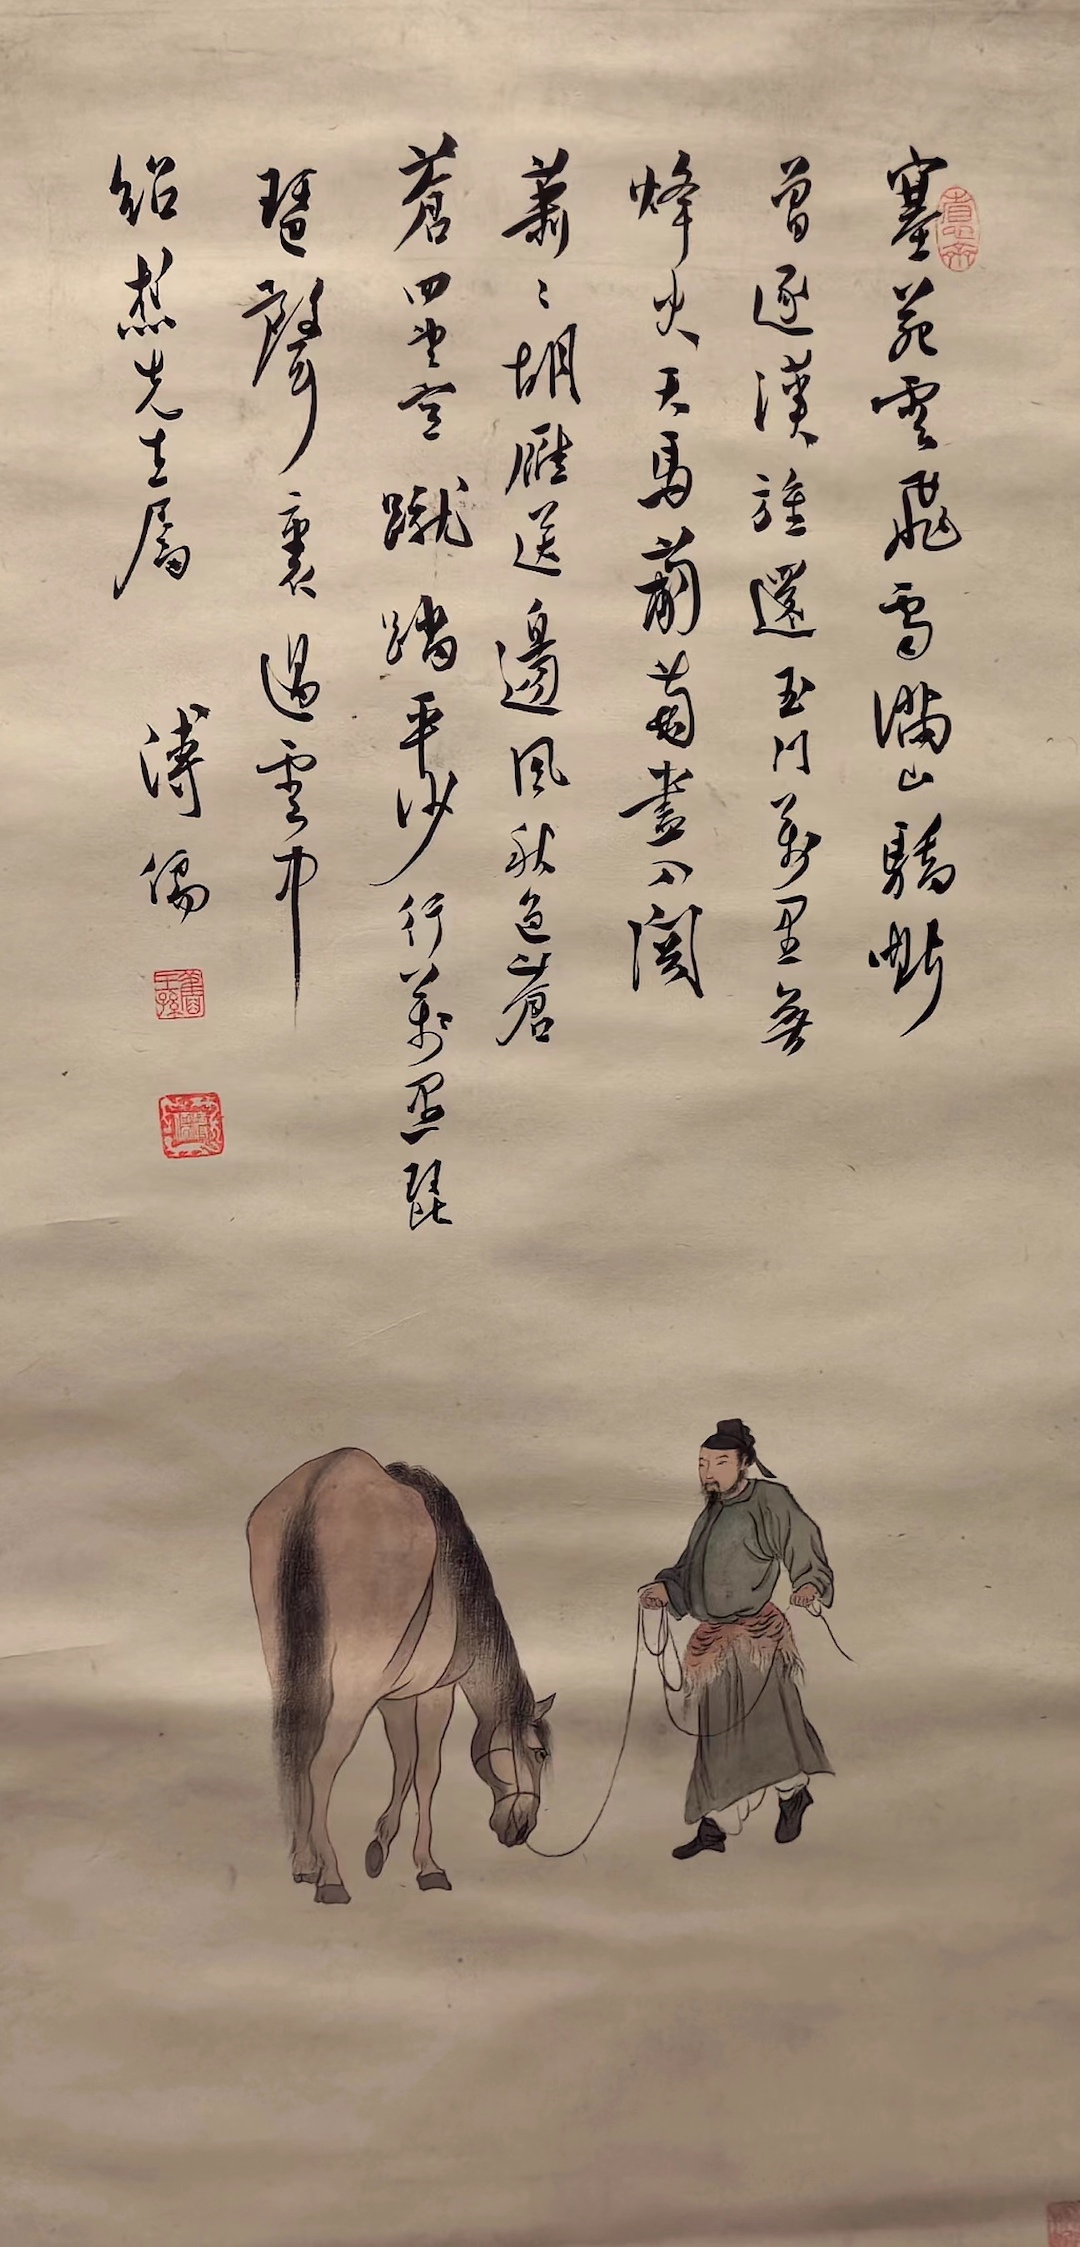 塞苑雲飛雪滿山驕嘶
曾逐漢旌還玉門萬里無
烽火天馬蒲萄盡入關
蕭〻胡雁送邊風秋色蒼
蒼四望空蹴踏平沙行萬里琵
琶聲裏過雲中
紹杰先生屬
溥儒
舊王孫